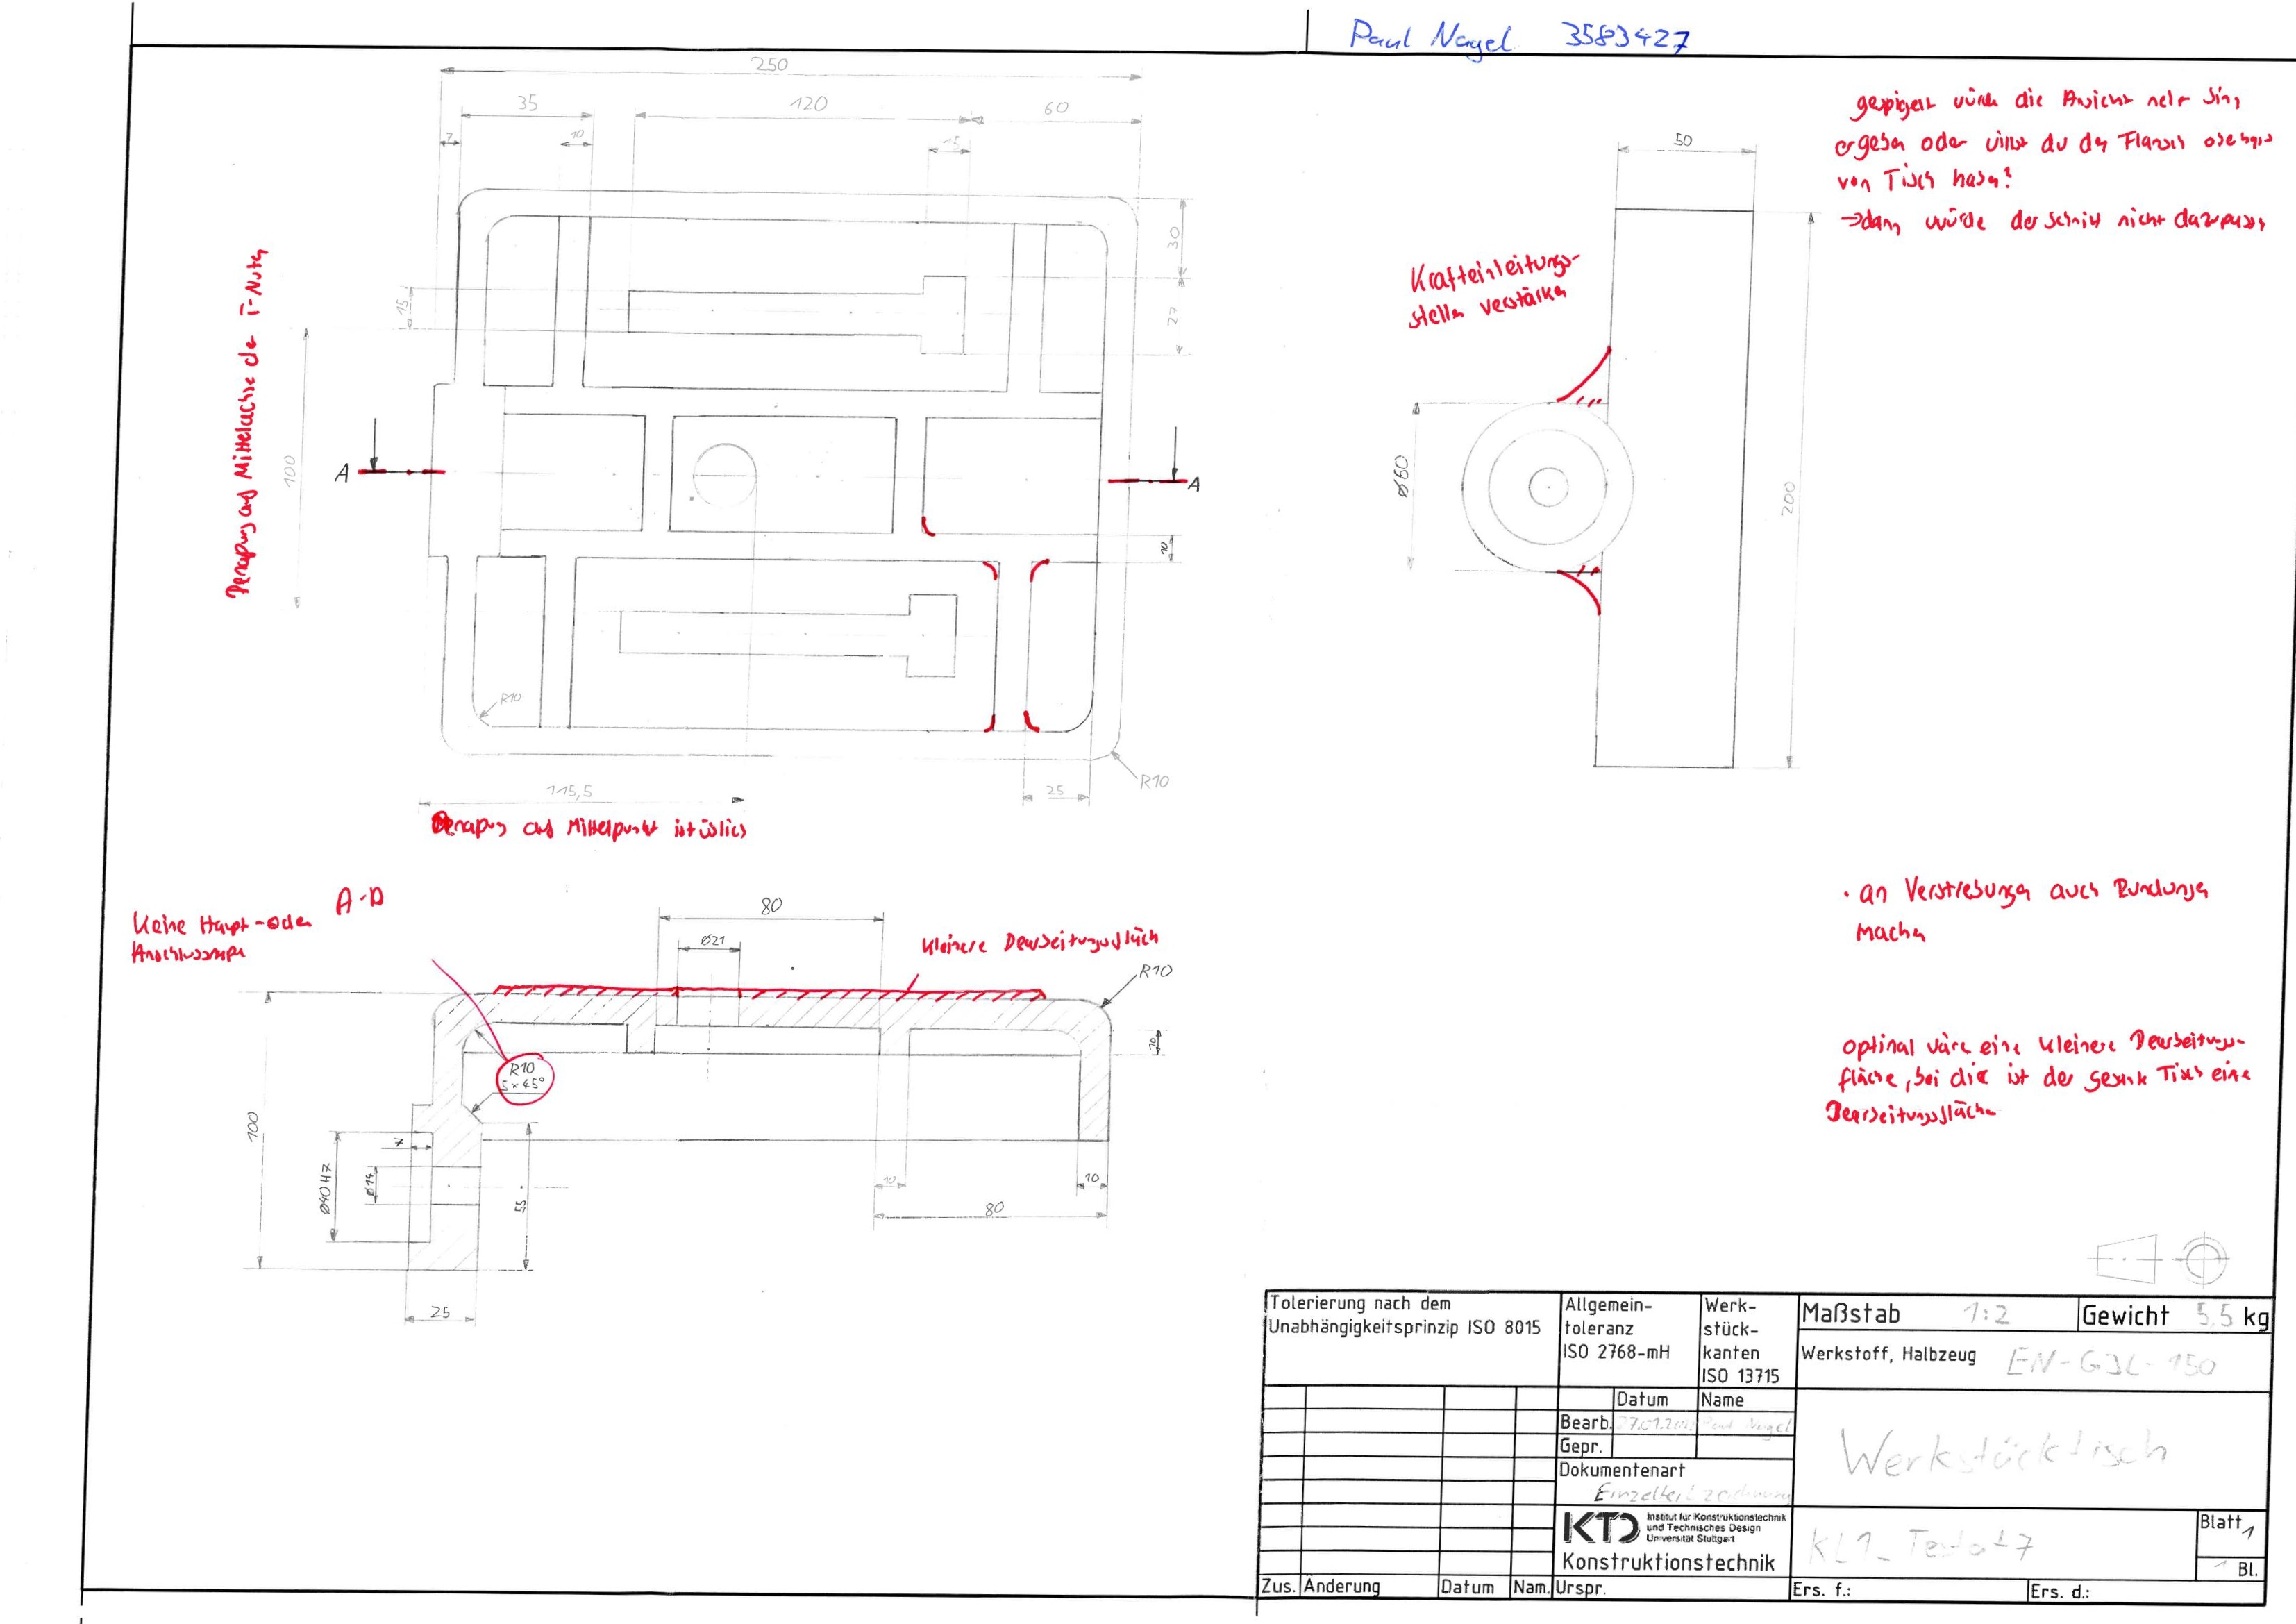 Paul Nagel 3583427
250
35
120
60
7
10
15
30
27
15
100
A
A
10
R10
R10
115,5
25
Bemaßung auf Mittelachse der T-Nuten
Bemaßung auf Mittelpunkt ist üblich
50
200
Ø60
Krafteinleitungs-
stellen verstärken
gespiegelt würde die Ansicht mehr Sinn
ergeben oder willst du den Flansch
von Tisch haben?
→dann würde der Schnitt nicht dazu passen
Keine Haupt-oder
A-A
80
Ø21
kleinere Bearbeitungsfläch
R10
R10
5×45°
10
100
7
Ø40H7
Ø14
55
10
10
80
25
· an Verstrebungen auch Rundungen
machen
optimal wäre eine kleinere Bearbeitungs-
fläche, bei dir ist der gesamte Tisch eine
Bearbeitungsfläche
Tolerierung nach dem
Unabhängigkeitsprinzip ISO 8015
Allgemein-
toleranz
ISO 2768-mH
Werk-
stück-
kanten
ISO 13715
Maßstab 1:2
Gewicht 5,5 kg
Werkstoff, Halbzeug EN-GJL-150
Datum Name
Bearb. Paul Nagel
Gepr.
Dokumentenart
Einzelteilzeichnung
Werkstücktisch
KTD
Institut für Konstruktionstechnik
und Technisches Design
Universität Stuttgart
Konstruktionstechnik
KL1_Testat7
Blatt 1
1 Bl.
Zus. Änderung Datum Nam. Urspr. Ers. f.: Ers. d.: